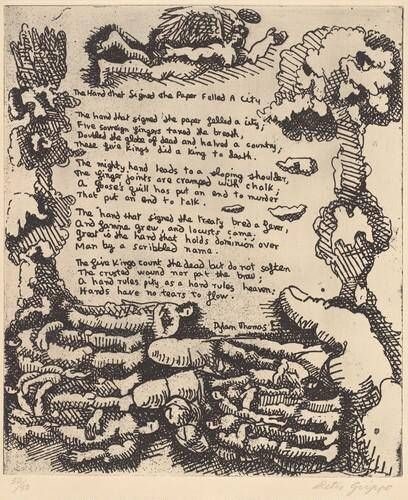 The Hand That Signed the Paper Felled A City
The hand that signed the paper felled a city,
Five sovereign fingers taxed the breath,
Doubled the globe of dead and halved a country,
These five kings did a king to death.
The mighty hand leads to a sloping shoulder,
The finger joints are cramped with chalk,
A goose's quill has put an end to murder
That put an end to talk.
The hand that signed the treaty bred a fever,
And famine grew, and locusts came.
Great is the Hand that holds dominion over
Man by a scribbled name.
The five Kings count the dead but do not soften
The crusted wound nor pat the brow.
A hand rules pity as a hand rules heaven;
Hands have no tears to flow.
Dylan Thomas
Peter Grippe